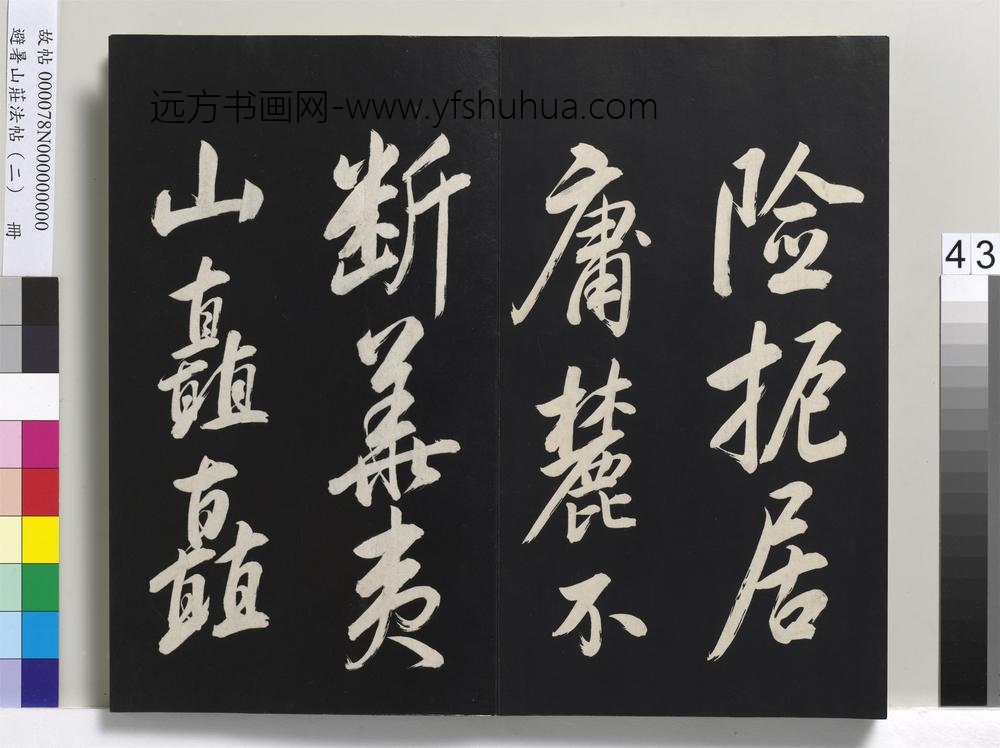 远方书画网-www.yfshuhua.com
险扼居
庸麓不
断華夷
山矗矗
故帖 000078N000000000
避暑山莊法帖（二） 冊
43